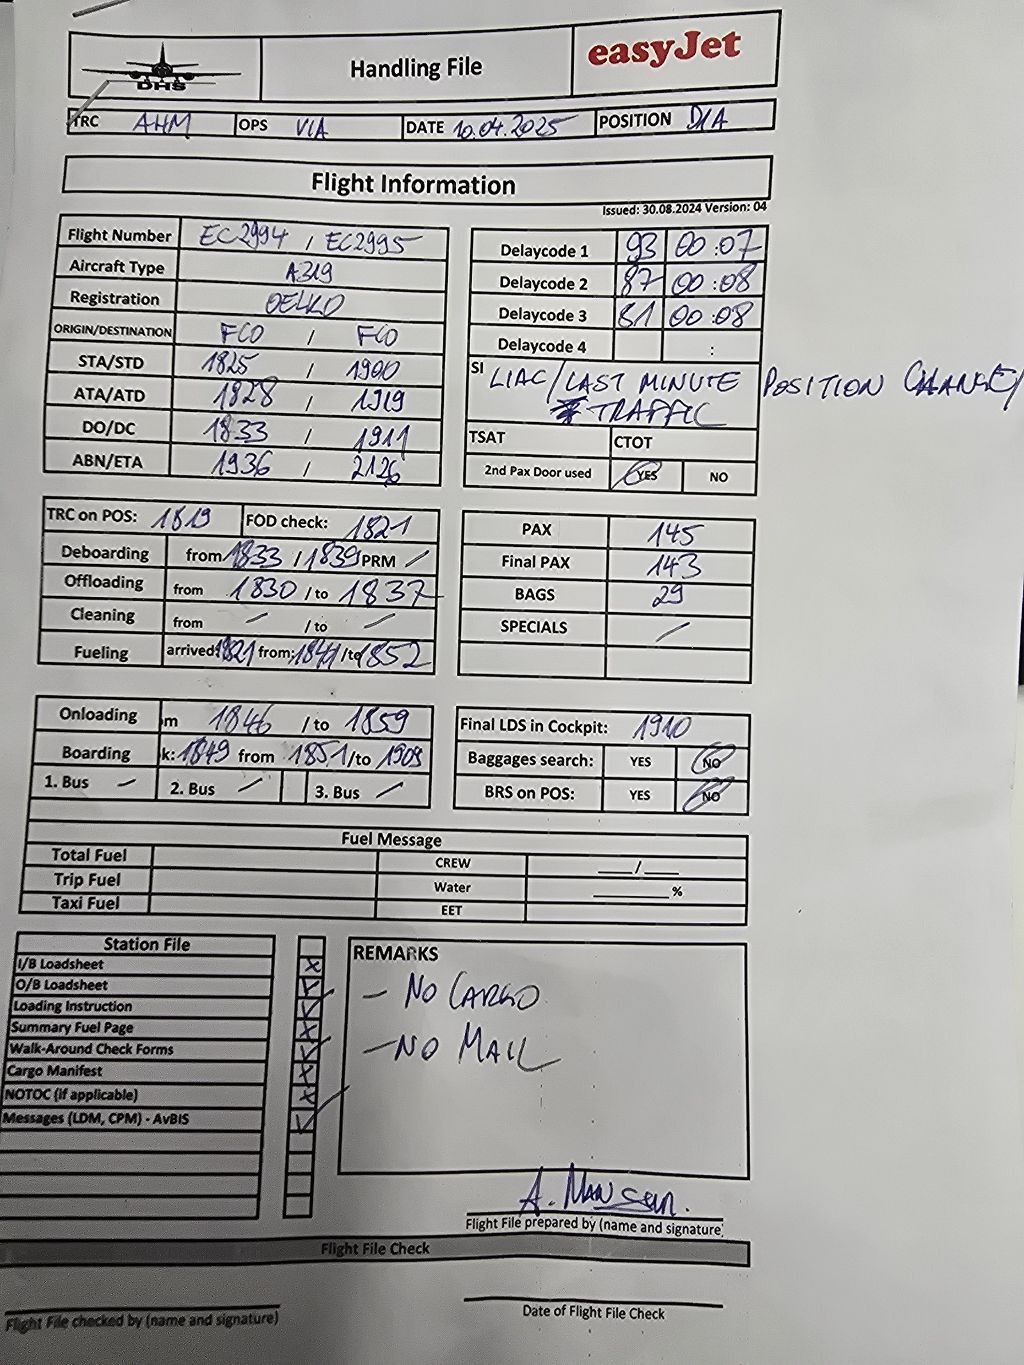 DHS
Handling File
easyJet
TRC AHM OPS VIA DATE 10.04.2025 POSITION D/A
Flight Information
Issued: 30.08.2024 Version: 04
Flight Number EC2994 / EC2995
Aircraft Type A319
Registration OELKO
ORIGIN/DESTINATION FCO / FCO
STA/STD 1825 / 1900
ATA/ATD 1828 / 1919
DO/DC 1833 / 1911
ABN/ETA 1936 / 2126
Delaycode 1 93 00:07
Delaycode 2 87 00:08
Delaycode 3 81 00:08
Delaycode 4 :
SI LIAC/LAST MINUTE POSITION CHANGE/
TRAFFIC
TSAT CTOT
2nd Pax Door used YES NO
TRC on POS: 1819 FOD check: 1821
Deboarding from 1833 / 1839 PRM /
Offloading from 1830 / to 1837
Cleaning from / / to /
Fueling arrived: 1821 from: 1841 /to 1852
PAX 145
Final PAX 143
BAGS 29
SPECIALS /
Onloading m 1846 / to 1859
Boarding k: 1849 from 1851 / to 1909
1. Bus / 2. Bus / 3. Bus /
Final LDS in Cockpit: 1910
Baggages search: YES NO
BRS on POS: YES NO
Fuel Message
Total Fuel CREW ___/___
Trip Fuel Water ______%
Taxi Fuel EET
Station File
I/B Loadsheet X
O/B Loadsheet ✓
Loading Instruction ✓
Summary Fuel Page X
Walk-Around Check Forms ✓
Cargo Manifest X
NOTOC (if applicable) X
Messages (LDM, CPM) - AvBIS ✓
REMARKS
- NO CARGO
- NO MAIL
A.
Flight File prepared by (name and signature)
Flight File Check
Flight File checked by (name and signature)
Date of Flight File Check